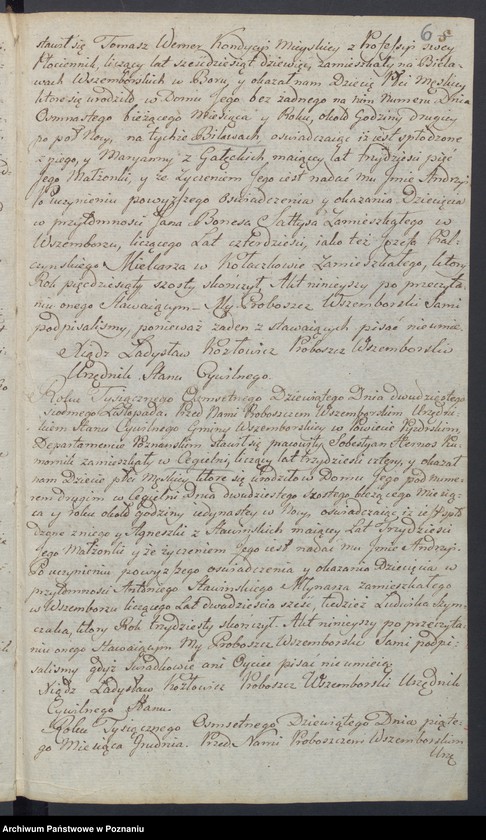 65
stawił się Tomasz Werner Kondycyi Mieyskiey z Professyi swey
Płociennik, liczący lat szescdziesiąt dziewięc, zamieszkały na Biela-
wach Wszemborskich w Boru, y okazał nam Dziecię Płci Męskiey
ktore się urodziło w Domu Jego bez zadnego na nim Numeru Dnia
Osmnastego biezącego Miesiąca y Roku, około Godziny drugiey
po poł Nocy, na tychże Bilawach, oswiadczaiąc iż iest spłodzone
z niego, y Maryanny z Gałęckich maiącey lat trzydziesci pięc
Jego Małżonki, y że Zyczeniem Jego iest nadać mu Jmie Andrzy
Po uczynieniu powyższego Oswiadczenia y okazania Dziecięcia
w przytomnosci Jana Bonesa Sałtysa Zamieszkałego w
Wszemborzu, liczącego Lat czterdziesci, iako też Jozefa Pal-
czynskiego Mielcarza w Kołaczkowie Zamieszkałego, ktory
Rok pięcdziesiąty szosty skonczył. Akt ninieyszy po przeczyta-
niu onego Stawaiącym My Proboszcz Wszemborski Sami
podpisalismy, ponieważ żaden z stawaiących pisac nieumie.
Xiądz Ladysław Kozłowicz Proboszcz Wszemborski
Urzędnik Stanu Cywilnego.
Roku Tysiącznego Osmsetnego Dziewiątego Dnia dwudziestego
siodmego Listopada. Przed Nami Proboszczem Wszemborskim Urzędni-
kiem Stanu Cywilnego Gminy Wszemborskiey w Powiecie Pyzdrskim,
Departamencie Poznanskim stawił się pracowity Sobestyan Hernos Ko-
mornik zamieszkały w Cegielni, liczący lat trzydziesci cztery, y okazał
nam Dziecie płci Męskiey, ktore się urodziło w Domu Jego pod nume-
rem drugim w Cegielni Dnia dwudziestego szostego biezącego Miesią-
ca y roku około godziny iedynastey w Nocy, oswiadczaiąc iż ie spło-
dzone z niego y Agneszki z Stawinskich maiącey Lat Trzydziesci
Jego Małżonki y że życzeniem Jego iest nadać mu Jmie Andrzy.
Po uczynieniu powyższego oswiadczenia y okazaniu Dziecięcia w
przytomnosci Antoniego Stawinskiego Młynarza zamieszkałego
w Wszemborzu liczącego Lat dwadziescia szesc, tudzież Ludwika Szym-
czaka, ktory Rok trzydziesty skonczył. Akt ninieyszy po przeczyta-
niu onego Stawaiącym My Proboszcz Wszemborski Sami podpi-
salismy gdyż Swiadkowie ani Oyciec pisac nieumieią
Xiądz Ladysław Kozłowicz Proboszcz Wszemborski Urzędnik
Cywilnego Stanu.
Roku Tysiącznego Osmsetnego Dziewiątego Dnia piąte-
go Miesiąca Grudnia. Przed Nami Proboszczem Wszemborskim
Urzę
Archiwum Państwowe w Poznaniu